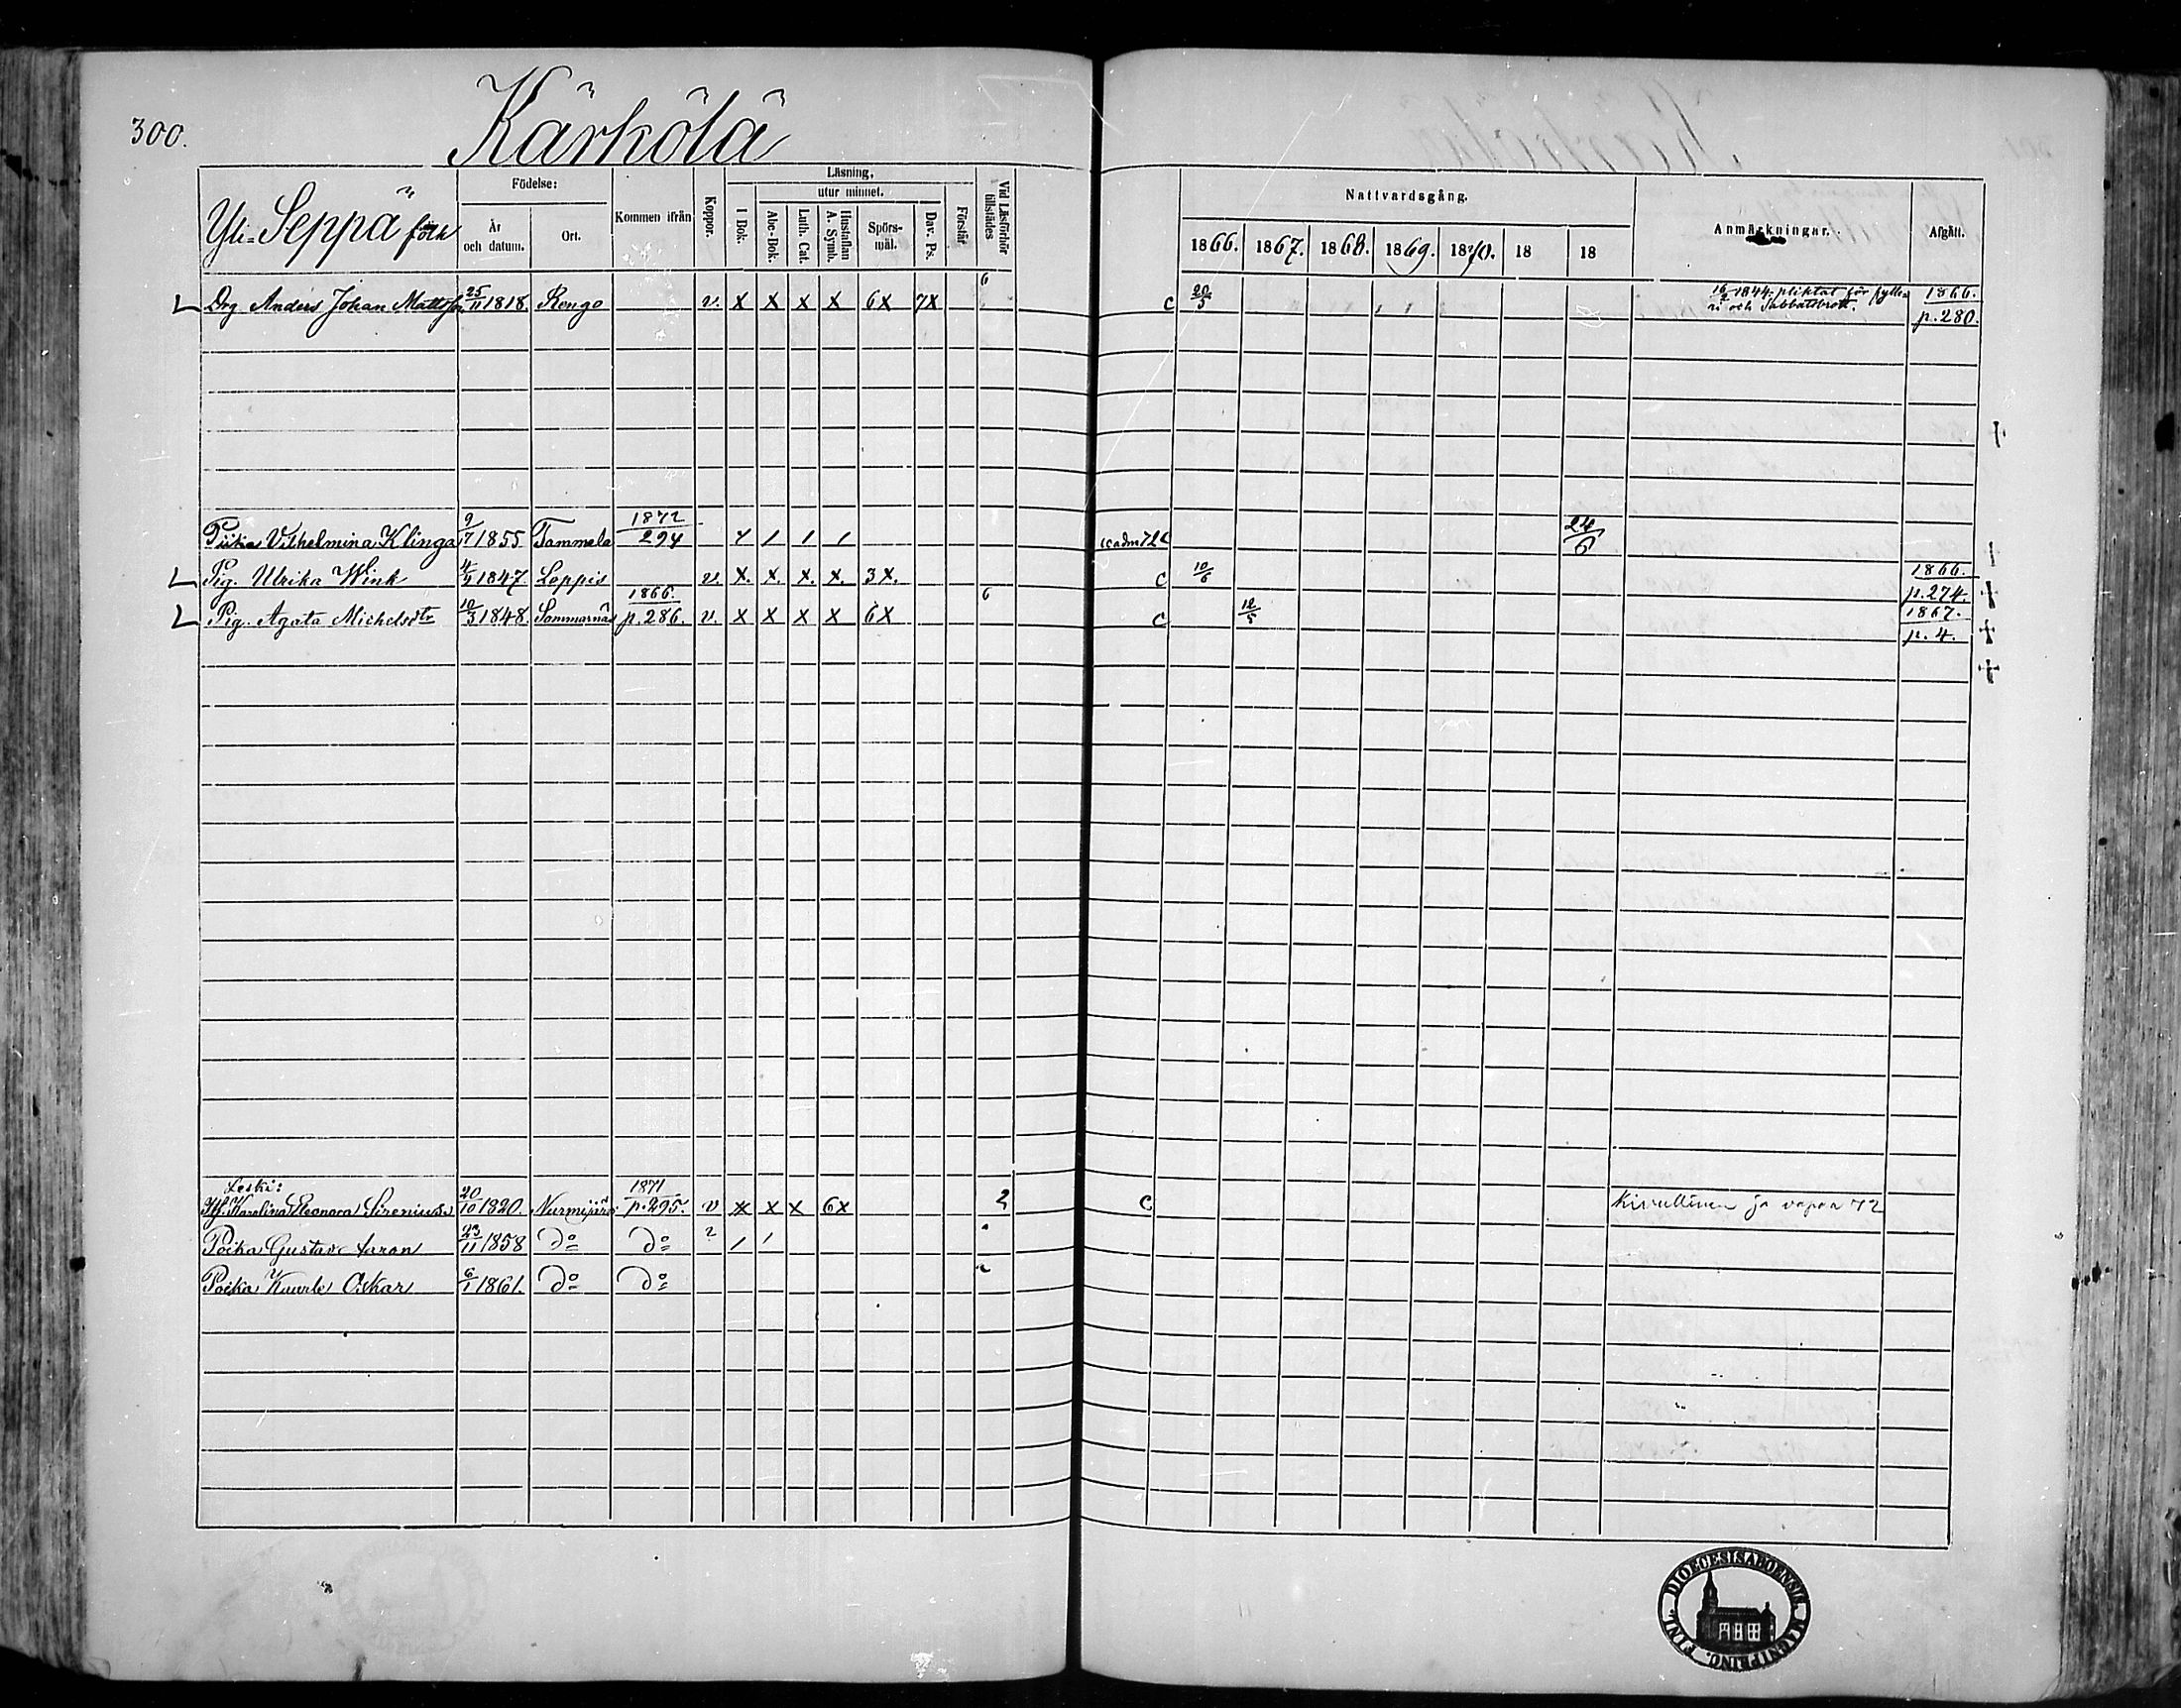 300.
Kärkölä
Yli-Seppä folk
Födelse:
År och datum.
Ort.
Kommen ifrån
Koppor.
Läsning,
utur minnet.
I Bok.
Abc-Bok.
Luth. Cat.
Hustaflan A. Symb.
Spörs-mål.
Dav. Ps.
Förstår
Vid Läsförhör tillstädes
Nattvardsgång.
1866. 1867. 1868. 1869. 1870. 18 18
Anmärkningar.
Afgått.
6
Drg Anders Johan Mattsson 25/11 1818. Rengo v. x x x x 6x 7x c 20/5 16/2 1844. pliktat för fylle= 1866.
ri och Sabbatsbrott. p. 280.
Piika Vilhelmina Klinga 9/7 1855 Tammela 1872 294 c adm 72 c 24/6
Pig. Ulrika Wink 4/4 1847. Loppis v. x. x. x. x. 3x. c 10/6 1866. p. 274.
Pig. Agata Michelsdtr 10/3 1848. Sommarnäs 1866. p. 286. v. x x x x 6x 6 c 12/5 1867. p. 4.
Leski:
Karolina Eleonora Sirenius 20/10 1820. Nurmijärvi 1871 p. 295. v x x x 6x 2 c ja vapaa 72
Poika Gustav Aaron 23/11 1858 do do
Poika Kaarle Oskar 6/1 1861. do do
FINL. DIOECESIS ABOENSIS. MAGNI PRINC.